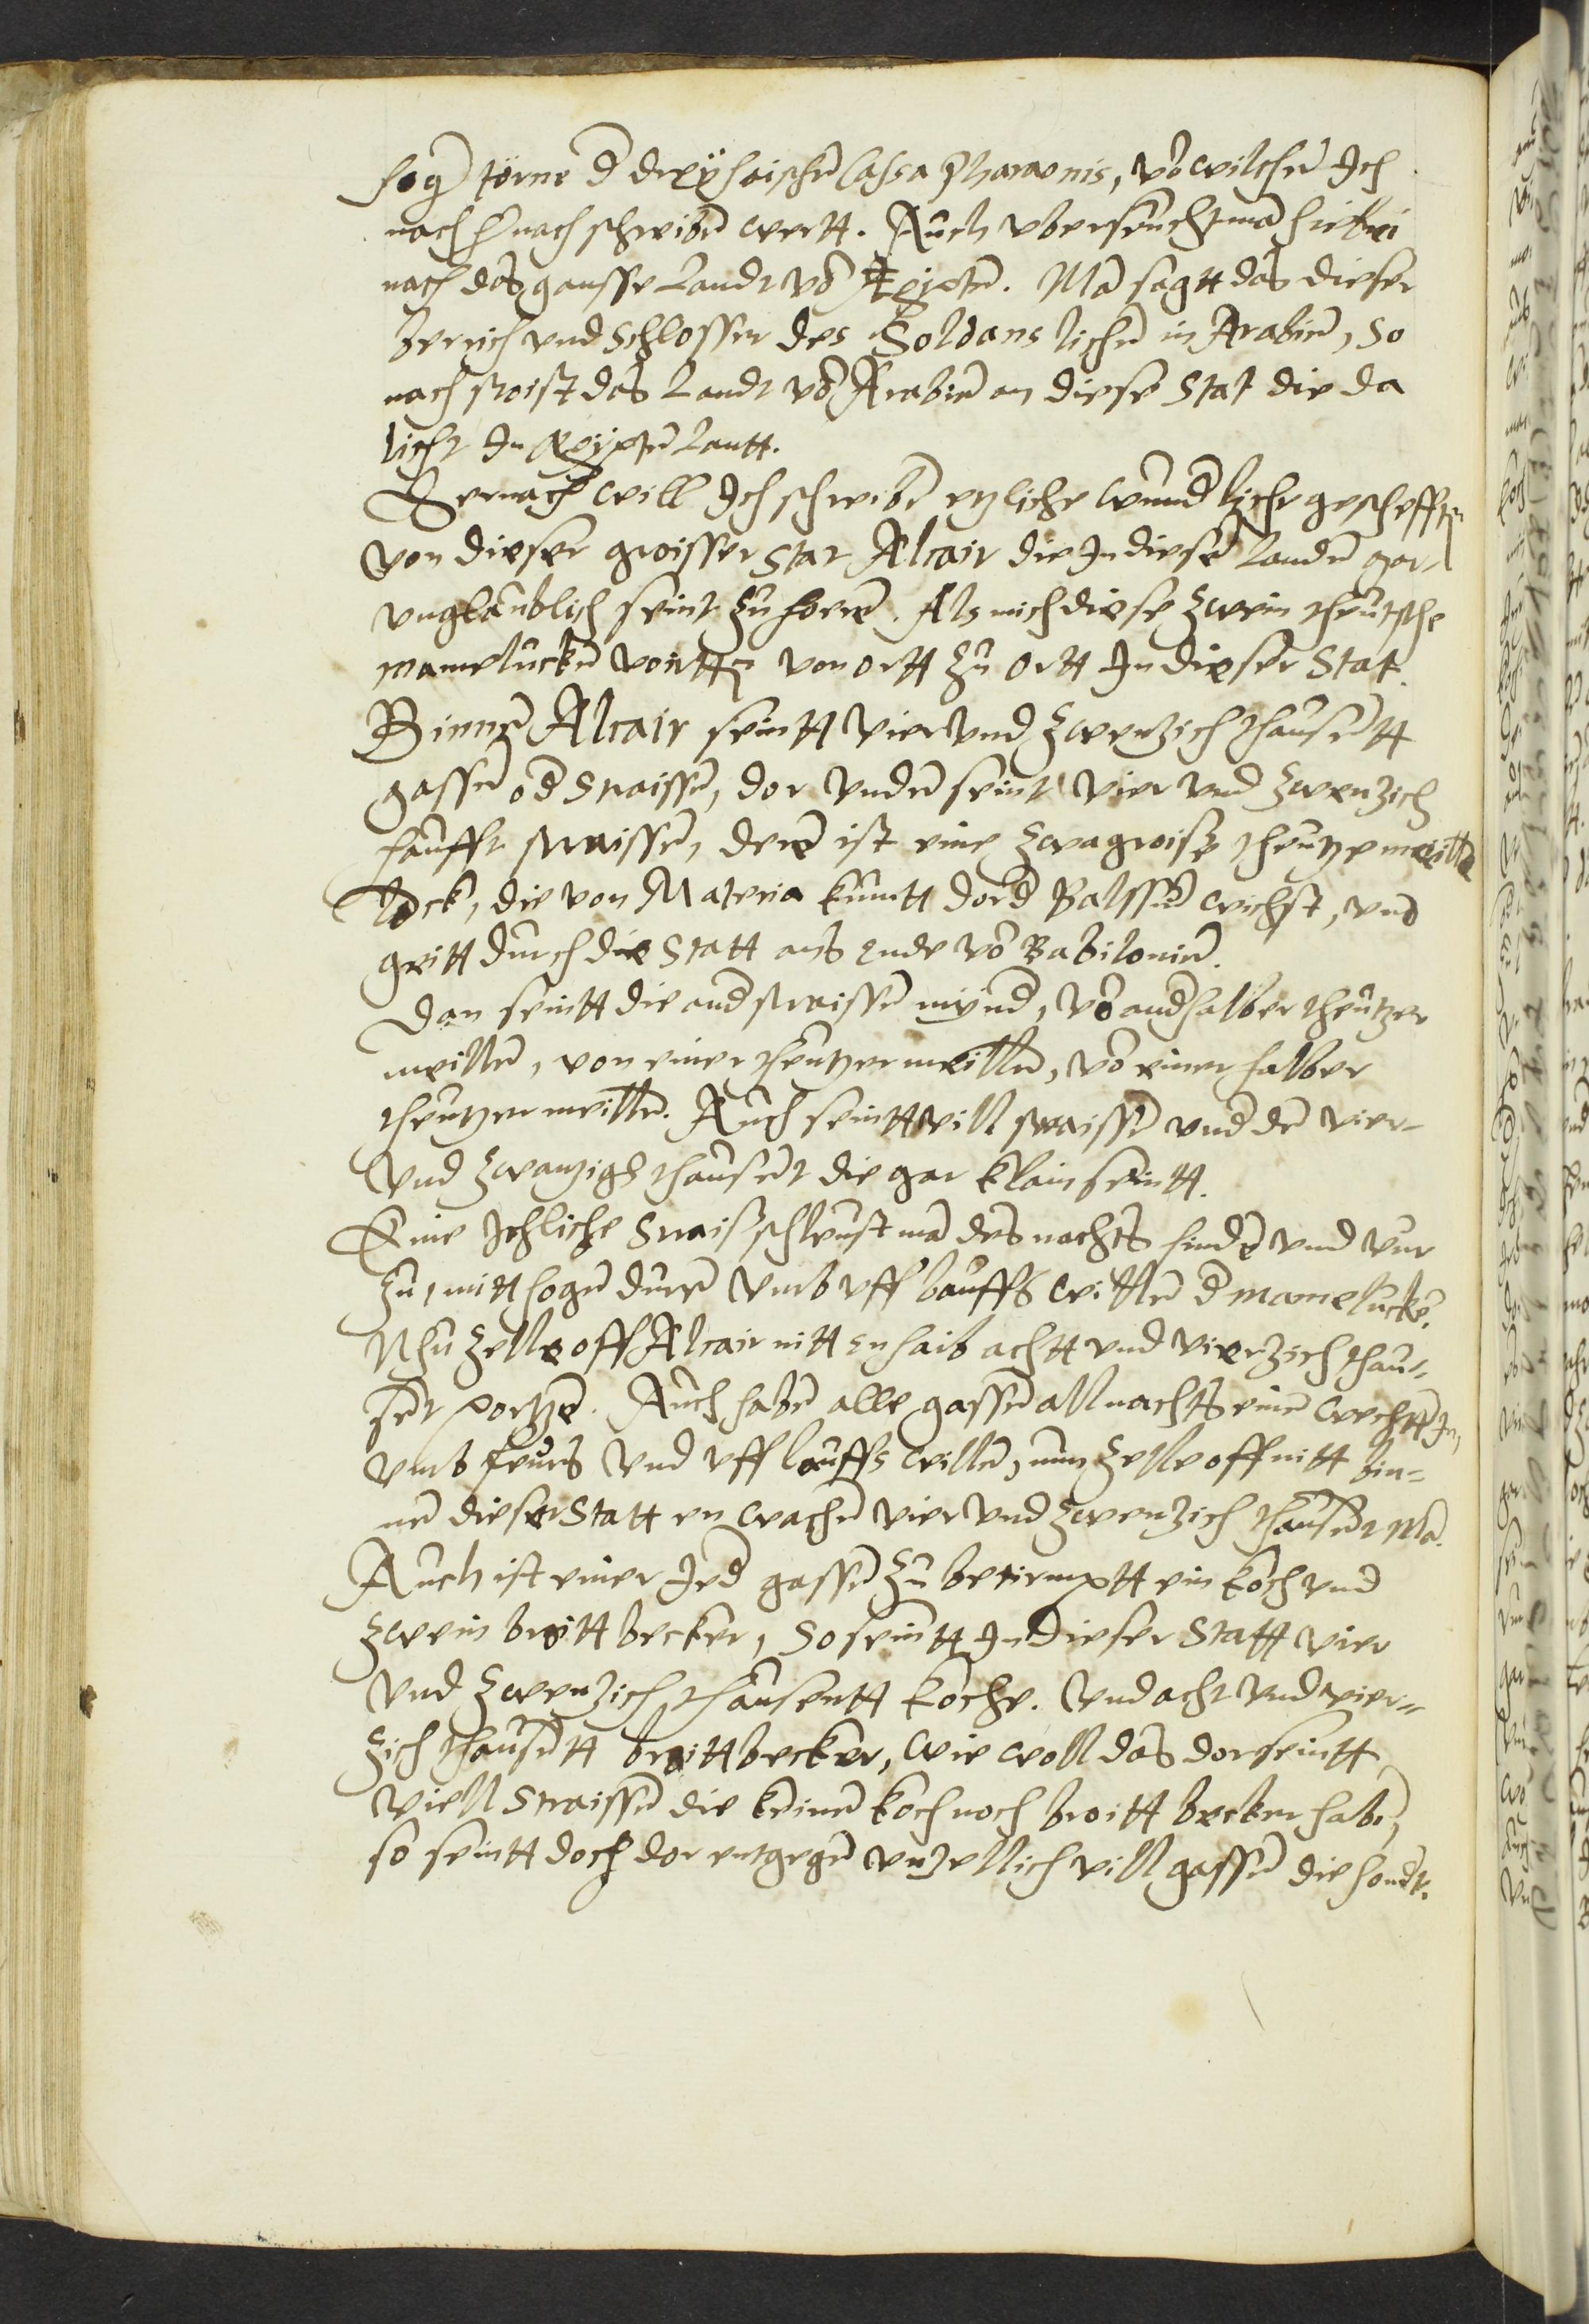 hog törne d dryÿ haischen Cassa Pharaonis, vo wilchen Ich
nach h nach schreiben wertt. Auch vbersuicht man hirbei
nach das gansse Landt vo Egipten. Ma sagtt das dieser
berich vnd Schlosser des Soldans lichen in Arabien, So
nach stoist das Landt vo Arabien an diese Stat die da
licht In Egÿpten Lantt.
Hernach will Ich schreiben etzliche wunnd liche geschefften
von dieser groisser Stat Alcair die In diesen landen gar
vnglaublich seint zu horen. Als mich diese zwein theutsche
mamelucken vortten von ortt zu ortt In dieser Stat.
Binnen Alcair seintt vier vnd zwenzich thausentt
gassen od Straissen, dor vnden seint vier vnd zwenzich
haufft straissen, deren ist eine zwa groisse theutze meille
lack, die von Materia kumtt dor d Balssem wichst, vnd
geitt durch die Statt ans ende vo Babilonien.
Dan seintt die and straissen mÿnd, vo and halber theutzer
meillen, von einer theutzer meillen, vo einer halber
theutzer meillen. Auch seintt vill straissen vnd den vier-
vnd zwanzigh thausent die gar klain seintt.
Eine Ichliche Straiß schleust ma des nachts hinden vnd vur
zu, mitt hogen duren vmb vff lauffs willen d mamelucken.
Nhu zelle off Alcair nitt en haib achtt vnd vierzich thau-
sent portzen. Auch haben alle gassen all nachts einen wechtter,
vmb feurs vnd vff lauffs willen, nun zelle off nitt bin-
nen dieser Statt en wachen vier vnd zwenzich thausent Ma.
Auch ist einer Ied gassen zu bestimptt ein koch vnd
zwein broitt becker, So seintt In dieser Statt vier
vnd zwenzich thausentt koche. vnd acht vnd vier-
zich thausentt broitt becker, wie woll das dor seintt
viell Straissen die keinen koch noch broitt becker haben,
so seintt doch dor entgegen vnzellich vill gassen die hondt.